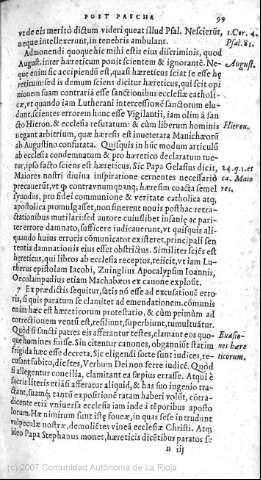 POST PASCHA 99
vt de eis meritò dictum videri queat illud Psal. Nescierūt, 1.Cor.4.
neque intellexerunt, in tenebris ambulant. Psal.81.
Admonendi quoque hic mihi estis eius discriminis, quod
August. inter hæreticum ponit scientem & ignorantē. Ne- August.
que enim sic accipiendū est, quasi hæreticus sciat se esse hę
reticum: sed is demum sciens dicitur hæreticus, qui scit opi
nionem suam contrariā esse sanctionibus ecclesiæ catholi-
cæ, vt quando iam Lutherani intercessionē sanctorum elu-
dunt, scientes errorem hunc esse Vigilantii, iam olim à san
cto Hieron. & ecclesia refutatum: & cùm liberum hominis Hieron.
negant arbitrium, quæ hæresis est inueterata Manichæorū
ab Augustino confutata. Quisquis in hūc modum articulū
ab ecclesia condemnatum & pro hæretico declaratum tue-
tur, ipso facto sciens est hæreticus. Sic Papa Gelasius dicit, 24.q.1.et
Maiores nostri diuina inspiratione cernentes necessariò ca. Maio
precauerūt, vt qp contra vnumquanq; hæresim coacta semel res.
synodus, pro fidei communione & veritate catholica atq;
apostolica promulgasset, non sinerent nouis posthac retra-
ctationibus mutilari: sed autore cuiuslibet insanię ac pari-
ter errore damnato, sufficere iudicauerunt, vt quisquis ali-
quando huius erroris cōmunicator existeret, principali sen
tentia damnationis eius esset obstrictus. Similiter sciēs est
hęreticus, qui libros ab ecclesia receptos, reiicit, vt iam Lu-
therus epistolam Iacobi, Zuinglius Apocalypsim Ioannis,
Oecolampadius etiam Machabæos ex canone explosit.
7 Ex prædictis sequitur, satis nō esse ad excusationē erro-
ris, si quis paratum se clamitet ad emendationem. cōmunis
enim hæc est hæreticorum protestatio, & cùm primùm ad
correctionem ventū est, resiliunt, superbiunt, tumultuātur.
Quòd si sancti patres eis afferantur testes, clamant eos quo- Euasio-
que homines fuisse. Sin citentur canones, obganniūt statim nes hære
frigida hæc esse decreta. Sic eligendi forte sunt iudices, re- ticorum.
cusant subito, dicētes, Verbum Dei non ferre iudicē. Quòd
si allegentur concilia, clamitant ea sæpius errasse. Atqui è
sacris literis etiāsi afferatur aliquid, & has suo ingenio tra-
ctant, suamq; tantū expositionē ratam haberi volūt, cōtra-
dicente etiā vniuersa ecclesia iam inde à tēporibus aposto
lorum. Hæ nimirum sunt istę foueæ, in quas sese intrudunt
vulpeculæ nostræ, demolitæ vineā ecclesiæ Christi. Atq;
ideo Papa Stephanus monet, hæreticis dictibus paratos se
n iij
(c) 2007 Comunidad Autónoma de La Rioja